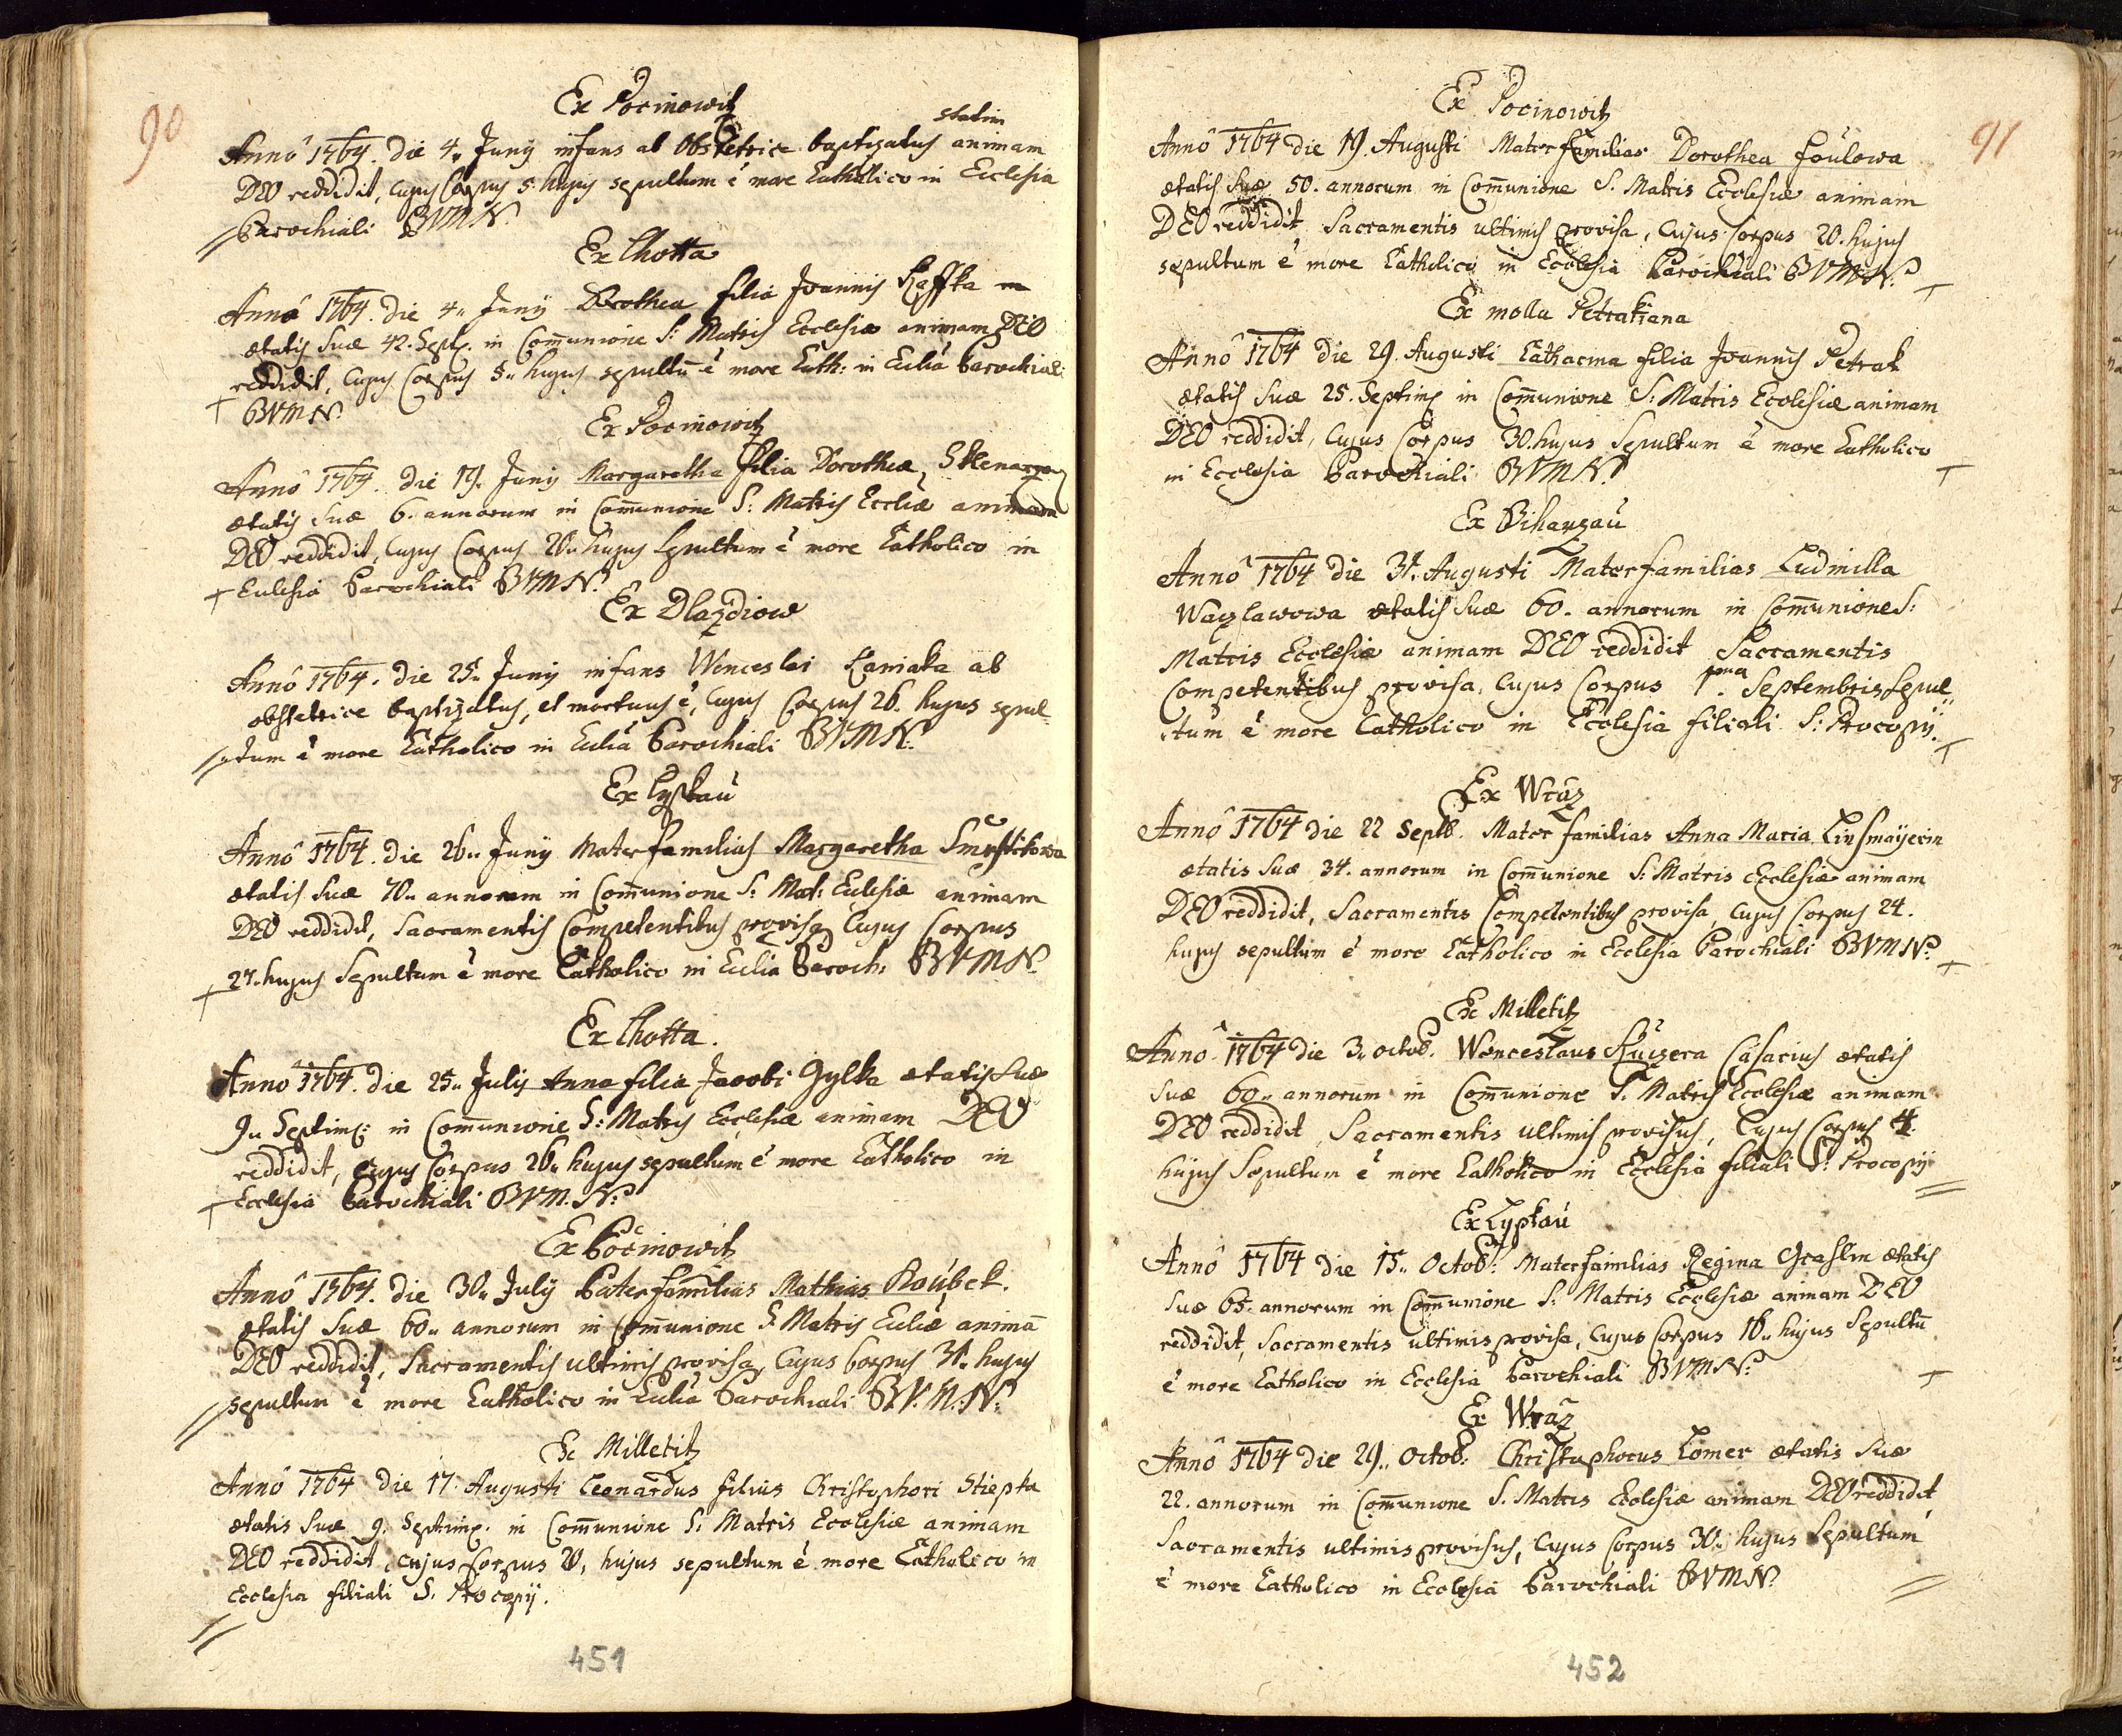 90
Ex Pocinowitz
statim
Anno 1764. die 4. Junÿ infans ab Obstetrice baptizatus animam
DEO reddidit, cujus Corpus 5. hujus sepultum ê more Catholico in Ecclesia
Parochiali BVMN.
Ex Lhotta
Anno 1764. die 4. Junÿ Dorothea filia Joannis
ætatis suæ 42. Sept. in Com̄unione S: Matris Ecclesiæ animam DEO
reddidit, cujus Corpus 5. hujus sepultū ê more Cath: in Eccliâ Parochiali
BVMN.
Ex Pocinowitz
Anno 1764. die 19. Junÿ Margaretha filia Dorotheæ
ætatis suæ 6. annorum in Com̄unione S: Matris Eccliæ animam
DEO reddidit, cujus Corpus 20. hujus sepultum ê more Catholico in
Ecclesia Parochiali BVMN.
Ex Dlazdiow
Anno 1764. die 25. Junÿ infans Wenceslai Kaniaka ab
obstetrice baptizatus, et mortuus ê, cujus Corpus 26. hujus sepul
tum ê more Catholico in Eccliâ Parochiali BVMN.
Ex Lypkau
Anno 1764. die 26. Junÿ Mater familias Margaretha
ætatis suæ 70. annorum in Com̄unione S: Mat: Ecclesiæ animam
DEO reddidit, Sacramentis Competentibus provisa, cujus Corpus
27. hujus Sepultum ê more Catholico in Ecclia Paroch: BVMN.
Ex Lhotta.
Anno 1764. die 25. Julÿ Anna filia Jacobi Gylka ætatis suæ
9. Septim: in Com̄unione S: Matris Ecclesiæ animam DEO
reddidit, cujus Corpus 26. hujus sepultum ê more Catholico in
Ecclesia Parochiali BVM.N.
Ex Počinowitz
Anno 1764. die 30. Julÿ Paterfamilias Mathias Roubek.
ætatis suæ 60. annorum in Com̄unione S. Matris Eccliæ animā
DEO reddidit, Sacramentis ultimis provisa, cujus Corpus 31. hujus
sepultum ê more Catholico in Eccliâ Parochiali B.V.M.N:
Ex Milletitz
Anno 1764 die 17. Augusti Leonardus filius Christophori Stiepka
ætatis suæ 9. Septim. in Com̄unione S: Matris Ecclesiæ animam
DEO reddidit, cujus Corpus 20, hujus sepultum ê more Catholico in
Ecclesia filiali S. Procopÿ.
451
91
Ex Pocinowitz
Anno 1764 die 19. Augusti Mater familias Dorothea Foulowa
ætatis suæ 50. annorum in Com̄unione S. Matris Ecclesiæ animam
DEO reddidit Sacramentis ultimis provisa, cujus Corpus 20. hujus
sepultum ê more Catholico in Ecclesia Parochiali BVMN.
Ex molla Petrakiana
Anno 1764 die 29. Augusti Catharina filia Joannis Petrak
ætatis suæ 25. Septim. in Com̄unione S: Matris Ecclesiæ animam
DEO reddidit, cujus Corpus 30. hujus Sepultum ê more Catholico
in Ecclesia Parochiali BVMN.
Ex Bihanzau
Anno 1764 die 31. Augusti Materfamilias Ludmilla
Waczlawowa ætatis suæ 60. annorum in Com̄unione S:
Matris Ecclesiæ animam DEO reddidit Sacramentis
Competentibus provisa, cujus Corpus 1ma. Septembris Sepul
tum ê more Catholico in Ecclesia filiali S: Procopÿ.
Ex Wraz
Anno 1764 die 22 Septb. Mater familias Anna Maria Linsmaÿerin
ætatis suæ 34. annorum in Com̄unione S: Matris Ecclesiæ animam
DEO reddidit, Sacramentis Competentibus provisa, cujus Corpus 24.
hujus sepultum ê more Catholico in Ecclesia Parochiali BVMN.
Ex Milletitz
Anno 1764 die 3. octob. Wenceslaus Kuczera Casarius ætatis
suæ 60. annorum in Com̄unione S. Matris Ecclesiæ animam
DEO reddidit, Sacramentis ultimis provisus, cujus Corpus 4.
hujus Sepultum ê more Catholico in Ecclesia filiali S: Procopÿ
Ex Lypkau
Anno 1764 die 15. Octob: Materfamilias Regina Graslin ætatis
suæ 65. annorum in Com̄unione S: Matris Ecclesiæ animam DEO
reddidit, Sacramentis ultimis provisa, cujus Corpus 16. hujus Sepultū
ê more Catholico in Ecclesia Parochiali BVMN:
Ex Wraz
Anno 1764 die 29. Octob: Christophorus Lomer ætatis suæ
22. annorum in Com̄unione S. Matris Ecclesiæ animam DEO reddidit
Sacramentis ultimis provisus, cujus Corpus 30. hujus Sepultum
ê more Catholico in Ecclesia Parochiali BVMN.
452